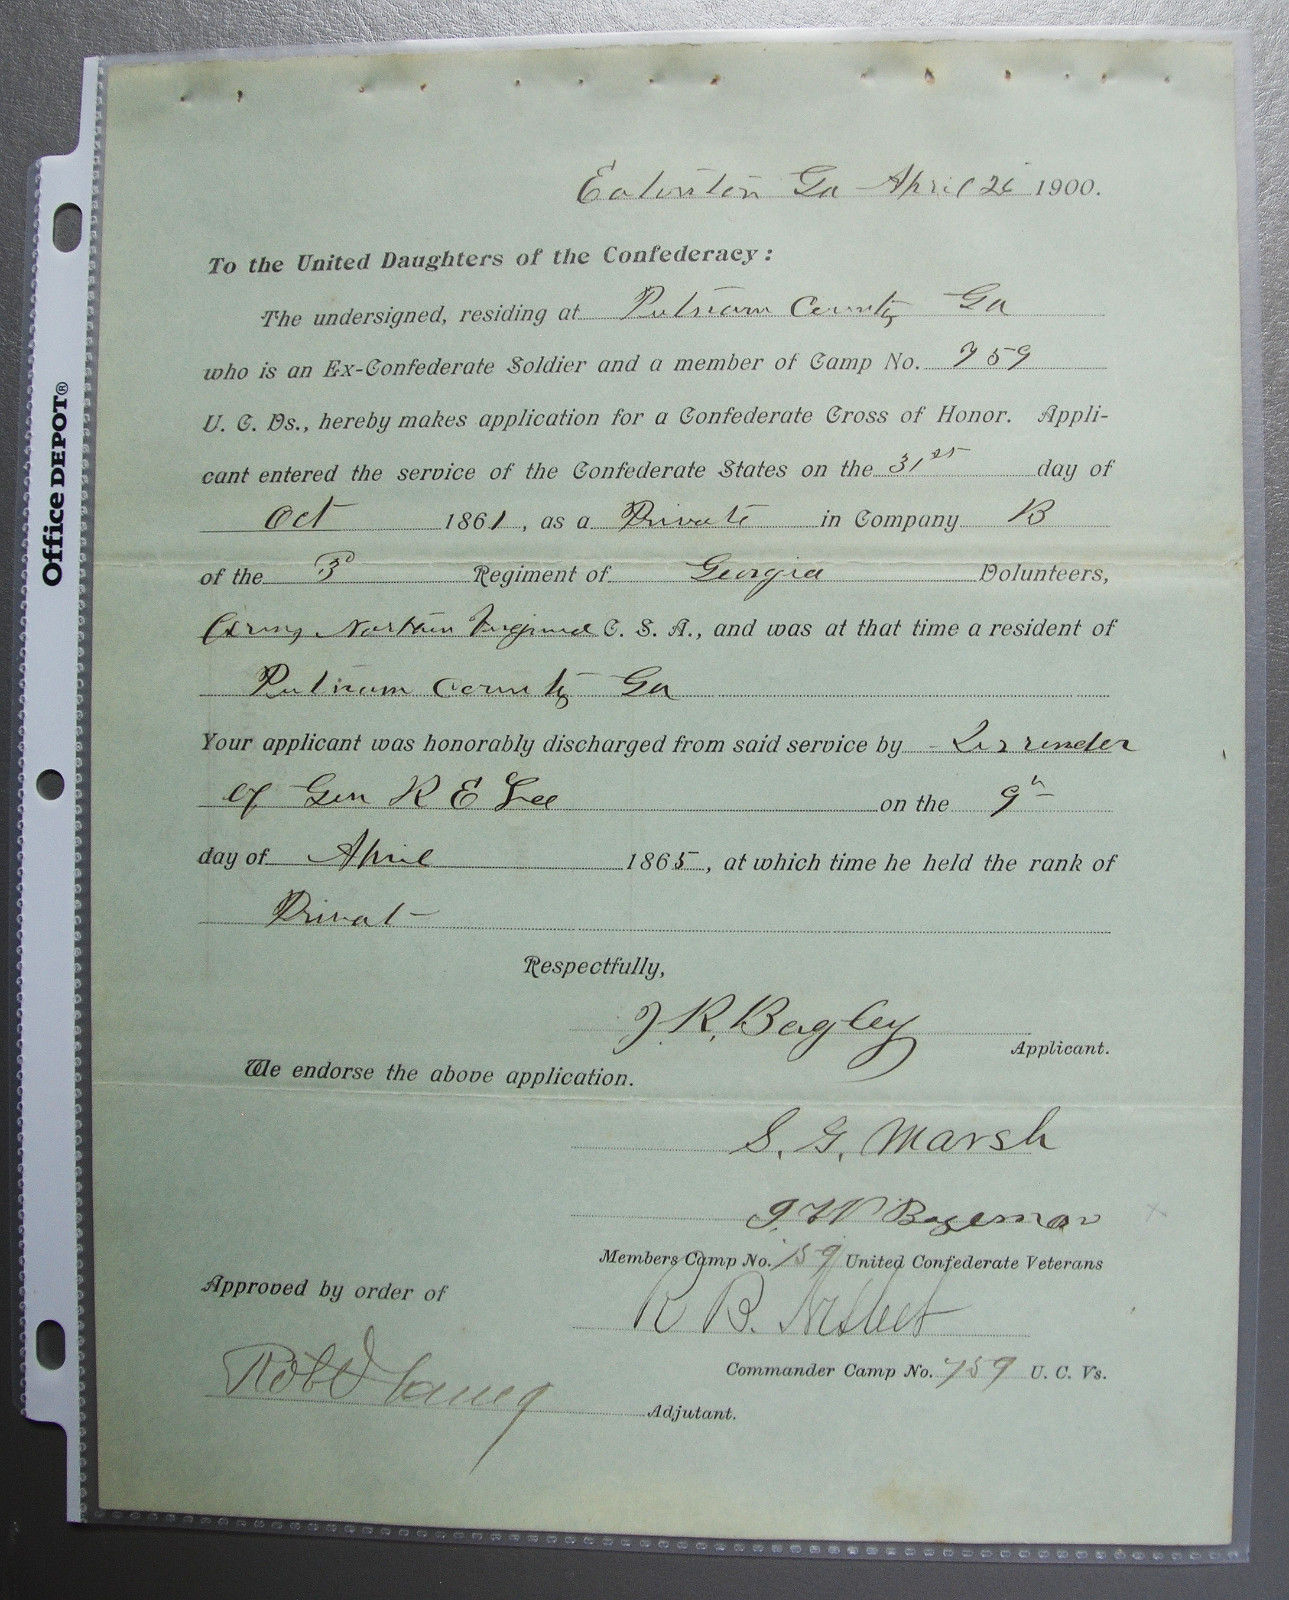 Eatonton Ga April 26 1900.
To the United Daughters of the Confederacy:
The undersigned, residing at Putnam County Ga
who is an Ex-Confederate Soldier and a member of Camp No. 759
U. C. Vs., hereby makes application for a Confederate Cross of Honor. Appli-
cant entered the service of the Confederate States on the 31st day of
Oct 1861, as a Private in Company B
of the 3d Regiment of Georgia Volunteers,
Army Northern Virginia C. S. A., and was at that time a resident of
Putnam County Ga
Your applicant was honorably discharged from said service by Surrender
of Gen R E Lee on the 9th
day of April 1865, at which time he held the rank of
Privat
Respectfully,
J. R. Bagley
Applicant.
We endorse the above application.
S. G. Marsh
Bozeman
Members Camp No. 759 United Confederate Veterans
Approved by order of
R B. Nisbet
Commander Camp No. 759 U. C. Vs.
Adjutant.
Office DEPOT®